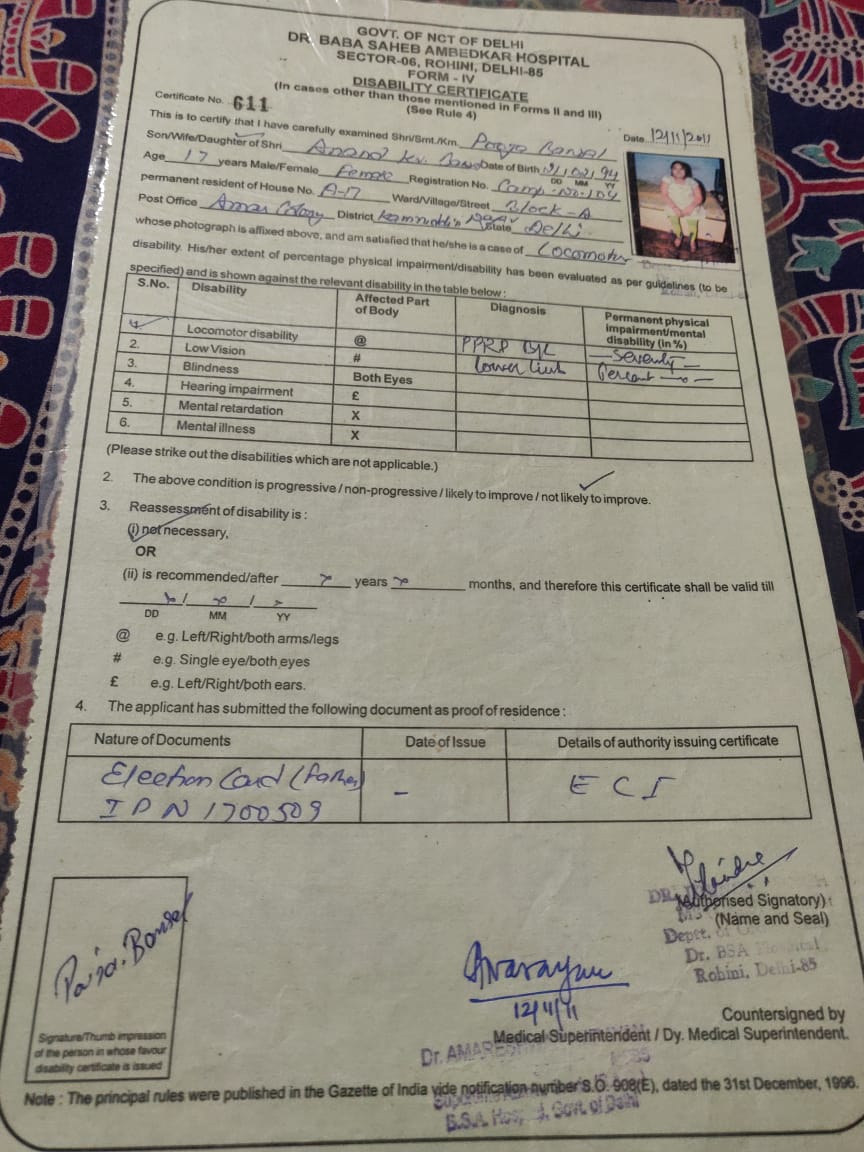 GOVT. OF NCT OF DELHI
DR. BABA SAHEB AMBEDKAR HOSPITAL
SECTOR-06, ROHINI, DELHI-85
FORM - IV
DISABILITY CERTIFICATE
(In cases other than those mentioned in Forms II and III)
(See Rule 4)
Certificate No. 611
Date 12/1/2011
This is to certify that I have carefully examined Shri/Smt./Km. Pooja Bansal
Son/Wife/Daughter of Shri Anand Kr. Date of Birth
DD MM YY
Age 17 years Male/Female Female Registration No. Camp-No-
permanent resident of House No. A-17 Ward/Village/Street Block-A
Post Office Amar Colony District Nagar State Delhi
whose photograph is affixed above, and am satisfied that he/she is a case of Locomotor
disability. His/her extent of percentage physical impairment/disability has been evaluated as per guidelines (to be
specified) and is shown against the relevant disability in the table below :
S.No. Disability Affected Part of Body Diagnosis Permanent physical impairment/mental disability (in %)
Locomotor disability @ PPRP B/L Seventy
2. Low Vision # Lower Limb Percent
3. Blindness Both Eyes
4. Hearing impairment £
5. Mental retardation X
6. Mental illness X
(Please strike out the disabilities which are not applicable.)
2. The above condition is progressive / non-progressive / likely to improve / not likely to improve.
3. Reassessment of disability is :
(i) not necessary,
OR
(ii) is recommended/after years months, and therefore this certificate shall be valid till
/ /
DD MM YY
@ e.g. Left/Right/both arms/legs
# e.g. Single eye/both eyes
£ e.g. Left/Right/both ears.
4. The applicant has submitted the following document as proof of residence :
Nature of Documents Date of Issue Details of authority issuing certificate
Election Card (Father) – E C I
I D N 1700509
(Authorised Signatory)
(Name and Seal)
DR.
Deptt. of
Dr. BSA Hospital
Rohini, Delhi-85
12/4/11
Countersigned by
Medical Superintendent / Dy. Medical Superintendent.
Dr.
B.S.A. Hospital, Govt. of Delhi
Signature/Thumb impression
of the person in whose favour
disability certificate is issued
Note : The principal rules were published in the Gazette of India vide notification number S.O. 908(E), dated the 31st December, 1996.